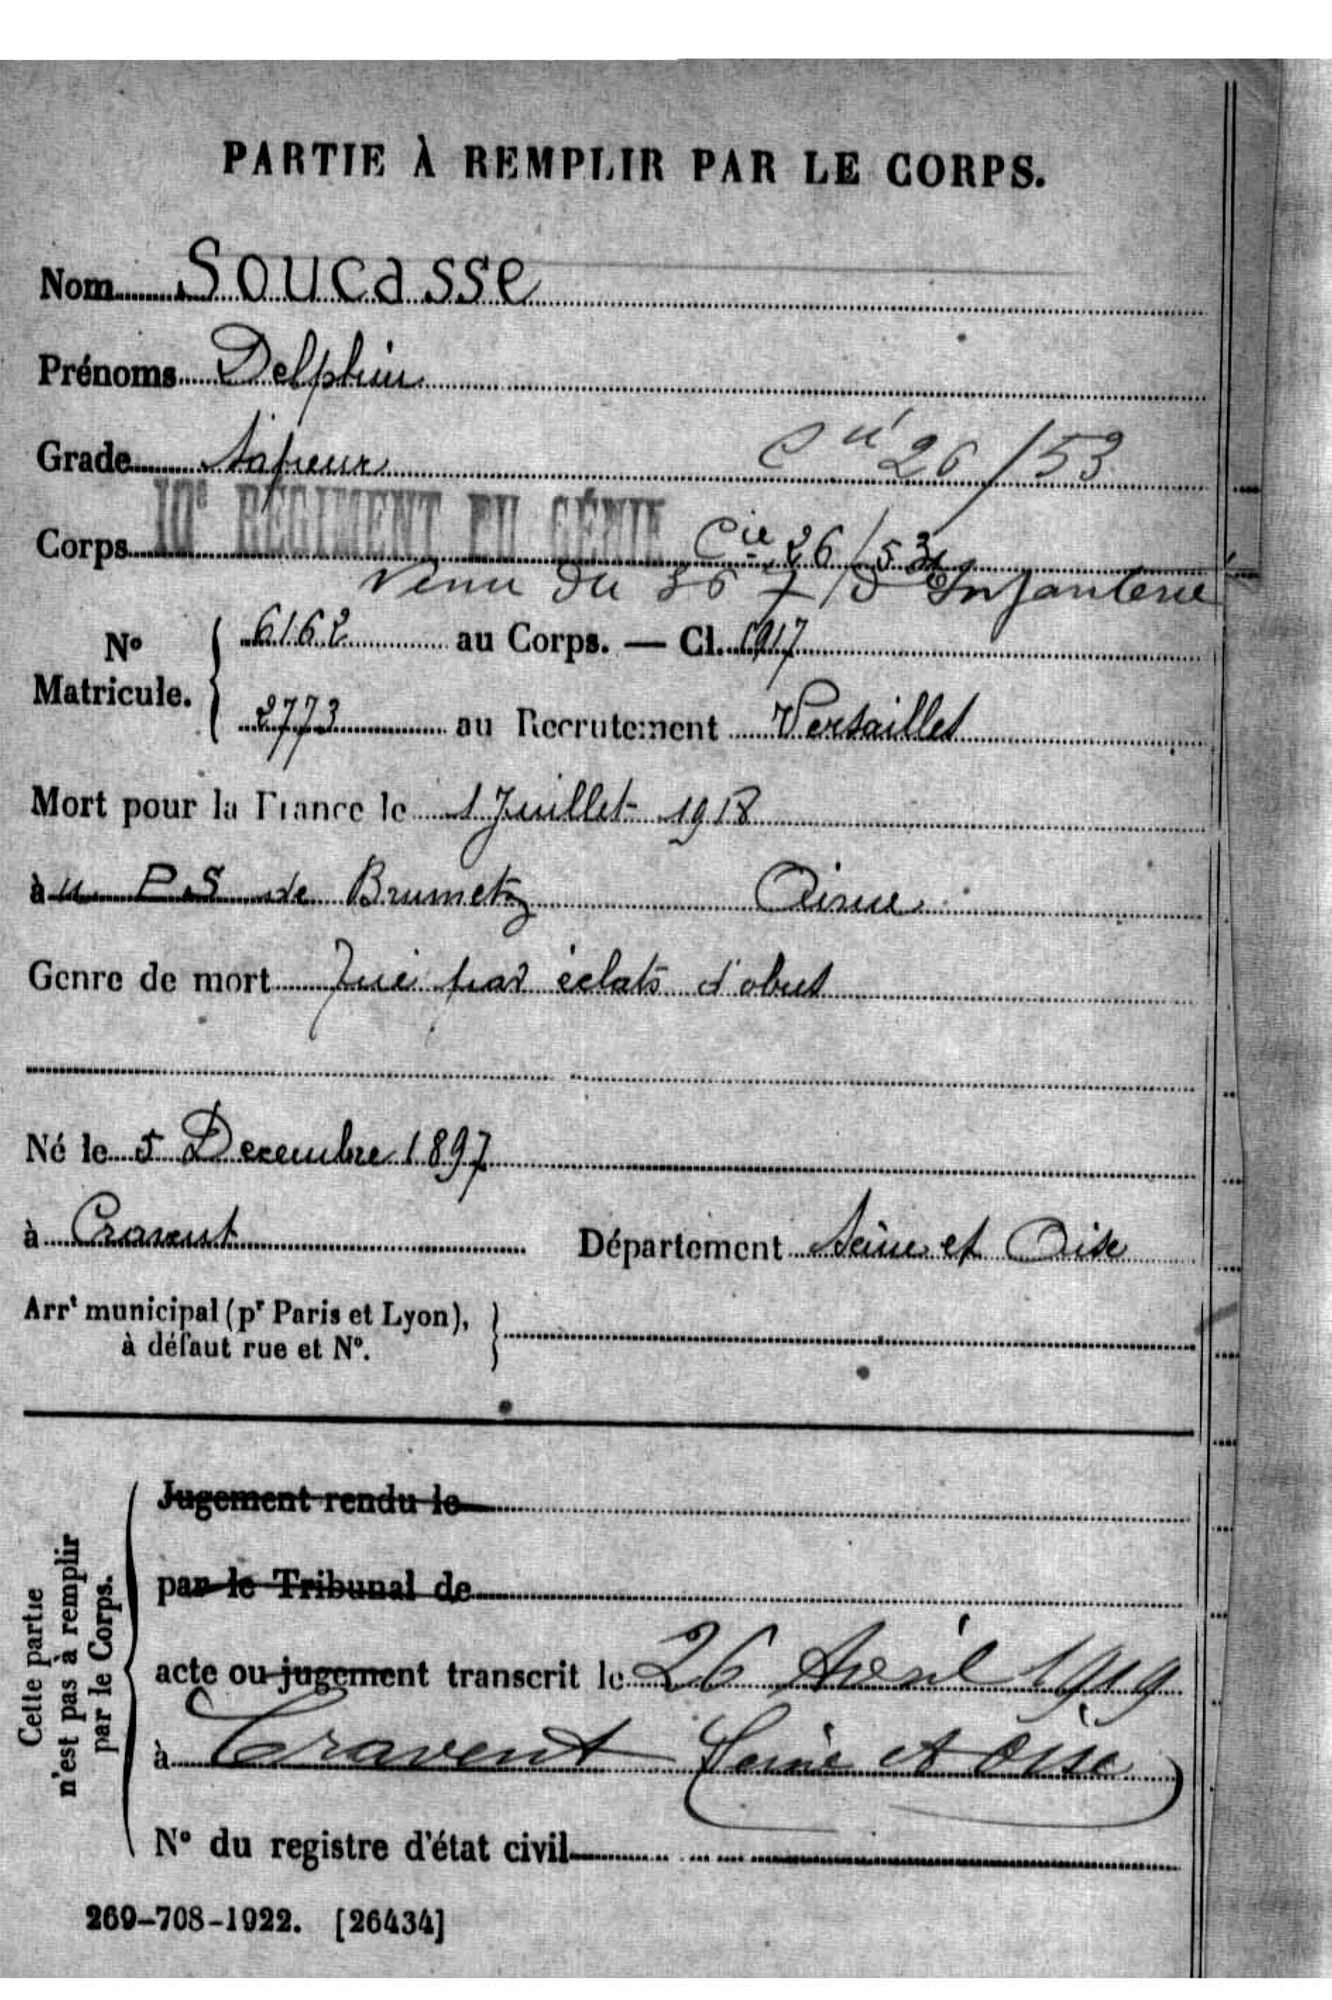 PARTIE À REMPLIR PAR LE CORPS.
Nom Soucasse
Prénoms Delphin
Grade Sapeur Cie 26/53
Corps 10e RÉGIMENT DU GÉNIE Cie 26/53
Venu du 36 7 Infanterie
No Matricule. { 6162 au Corps. — Cl. 1917
2773 au Recrutement Versailles
Mort pour la France le 1 Juillet 1918
au P.S de Brumetz Aisne
Genre de mort Tué par éclats d'obus
Né le 5 Decembre 1897
à Cravent Département Seine et Oise
Arrt municipal (pr Paris et Lyon),
à défaut rue et No.
Cette partie
n'est pas à remplir
par le Corps.
Jugement rendu le
par le Tribunal de
acte ou jugement transcrit le 26 Avril 1919
à Cravent (Seine et Oise)
No du registre d'état civil
269-708-1922. [26434]